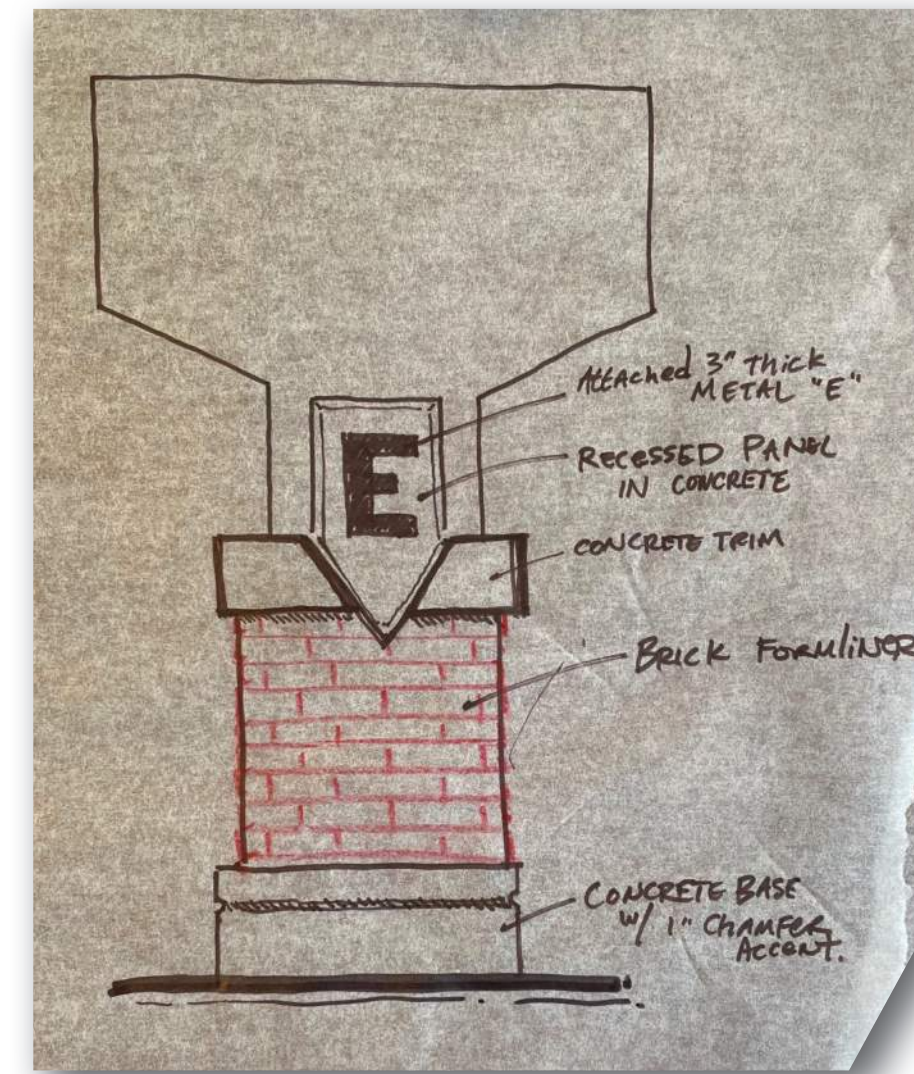 E
Attached 3" thick
METAL "E"
RECESSED PANEL
IN CONCRETE
CONCRETE TRIM
BRICK FORMLINER
CONCRETE BASE
W/ 1" CHAMFER
ACCENT.